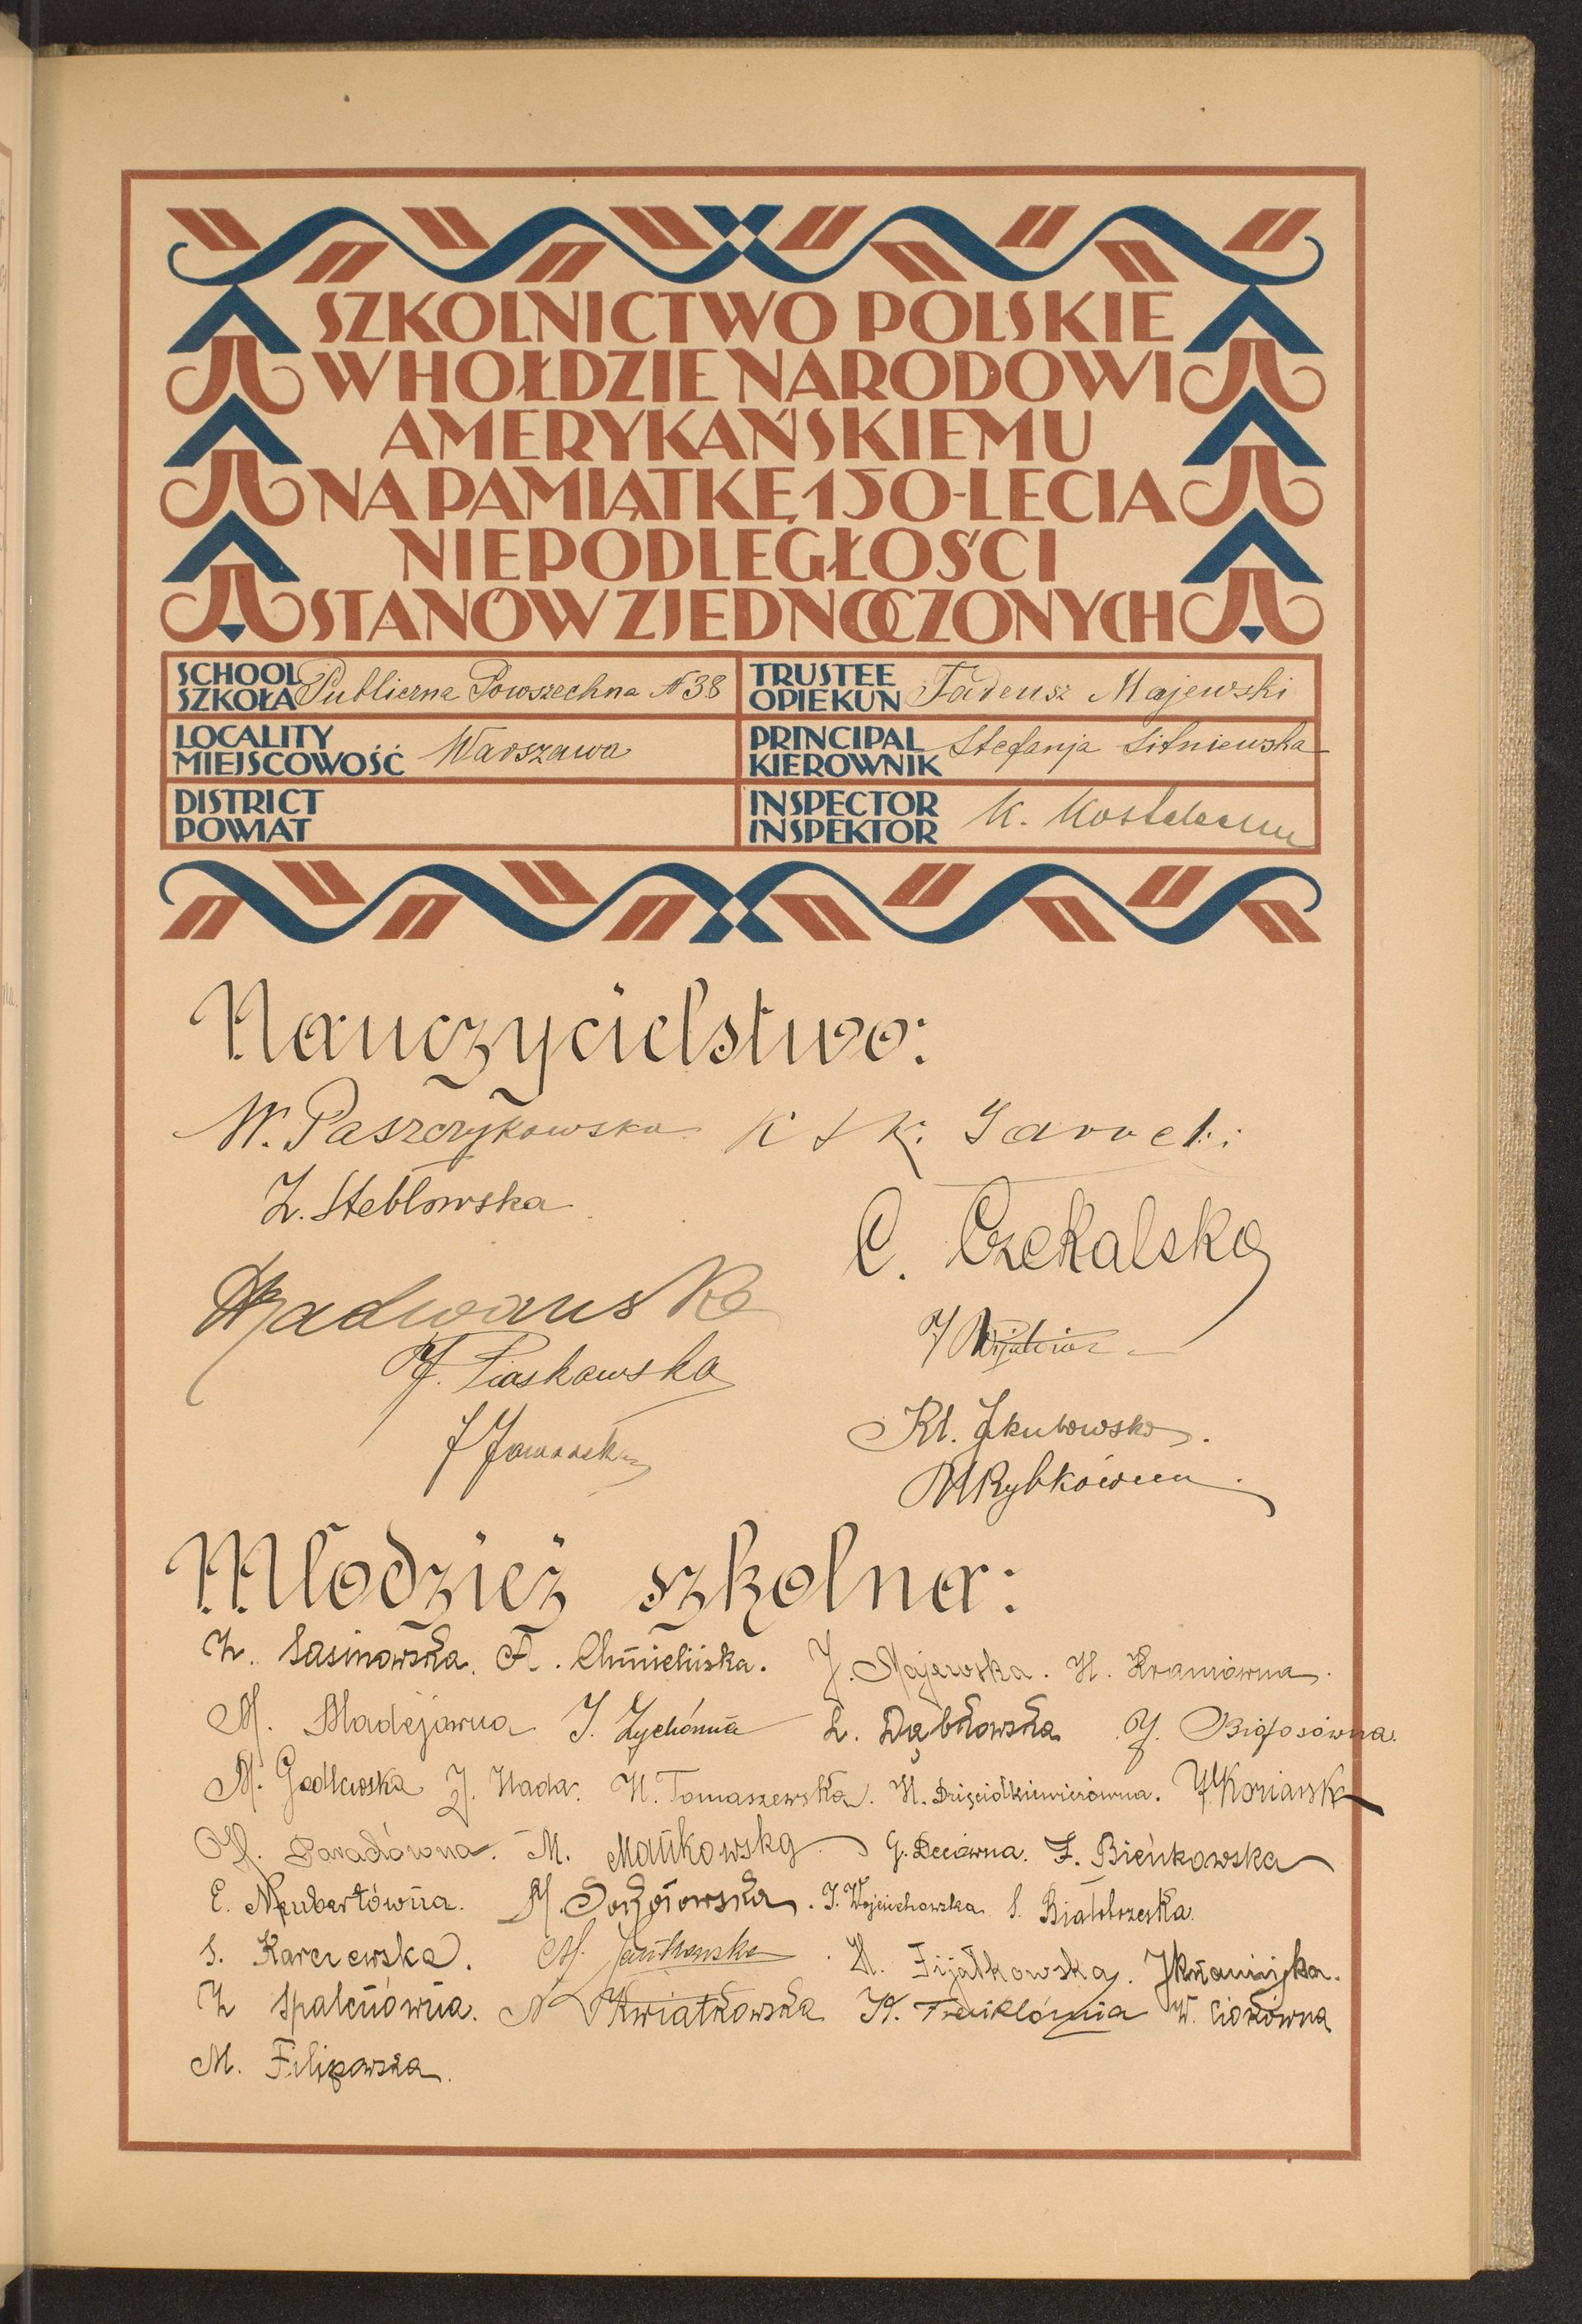 SZKOLNICTWO POLSKIE
W HOŁDZIE NARODOWI
AMERYKAŃSKIEMU
NA PAMIĄTKĘ 150-LECIA
NIEPODLEGŁOŚCI
STANÓW ZJEDNOCZONYCH
SCHOOL SZKOŁA Publiczna Powszechna № 38
TRUSTEE OPIEKUN Tadeusz Majewski
LOCALITY MIEJSCOWOŚĆ Warszawa
PRINCIPAL KIEROWNIK Stefanja Litniewska
DISTRICT POWIAT
INSPECTOR INSPEKTOR K.
Nauczycielstwo:
W. Paszczykowska
Z. Stebłowska
C. Czekalska
Radwańska
J. Piaskowska
M Rybkówna
Młodzież szkolna:
Z. Sasinowska. A. Chmielińska. J. Majewska. H. Kramówna.
M. Madejówna J. Zychówna L. Dąbkowska J. Bigosówna.
M. Godlewska J. Nada. H. Tomaszewska. H. Dzięciołkiewiczówna.
M. Mańkowska G. Decówna. F. Bieńkowska
E. Neubertówna. M. Sokołowska. J. Wojciechowska S. Białobrzeska.
S. Karczewska. M. Jankowska H. Fijałkowska.
Z Spaleniówna. N Kwiatkowska W. Ciokówna
M. Filipowska.